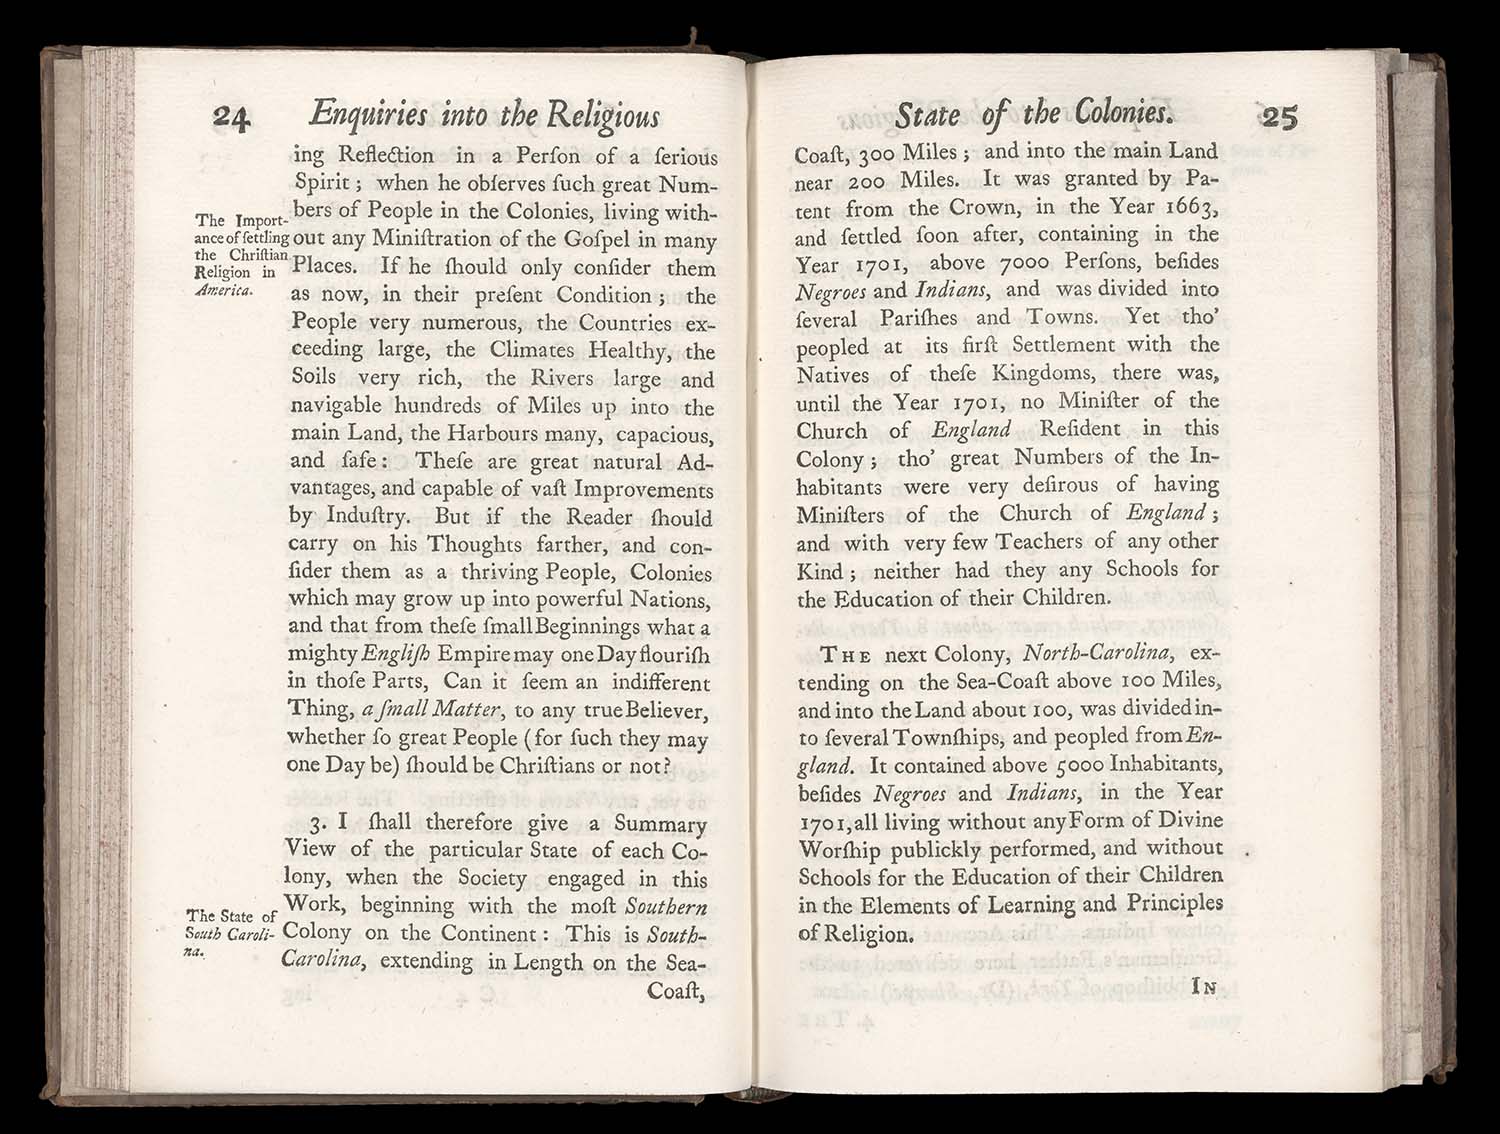 24 Enquiries into the Religious
ing Reflection in a Perſon of a ſerious
Spirit ; when he obſerves ſuch great Num-
bers of People in the Colonies, living with-
out any Miniſtration of the Goſpel in many
Places. If he ſhould only conſider them
as now, in their preſent Condition ; the
People very numerous, the Countries ex-
ceeding large, the Climates Healthy, the
Soils very rich, the Rivers large and
navigable hundreds of Miles up into the
main Land, the Harbours many, capacious,
and ſafe : Theſe are great natural Ad-
vantages, and capable of vaſt Improvements
by Induſtry. But if the Reader ſhould
carry on his Thoughts farther, and con-
ſider them as a thriving People, Colonies
which may grow up into powerful Nations,
and that from theſe ſmall Beginnings what a
mighty Engliſh Empire may one Day flouriſh
in thoſe Parts, Can it ſeem an indifferent
Thing, a ſmall Matter, to any true Believer,
whether ſo great People (for ſuch they may
one Day be) ſhould be Chriſtians or not ?
3. I ſhall therefore give a Summary
View of the particular State of each Co-
lony, when the Society engaged in this
Work, beginning with the moſt Southern
Colony on the Continent : This is South-
Carolina, extending in Length on the Sea-
Coaſt,
The Import-
ance of ſettling
the Chriſtian
Religion in
America.
The State of
South Caroli-
na.
State of the Colonies. 25
Coaſt, 300 Miles ; and into the main Land
near 200 Miles. It was granted by Pa-
tent from the Crown, in the Year 1663,
and ſettled ſoon after, containing in the
Year 1701, above 7000 Perſons, beſides
Negroes and Indians, and was divided into
ſeveral Pariſhes and Towns. Yet tho'
peopled at its firſt Settlement with the
Natives of theſe Kingdoms, there was,
until the Year 1701, no Miniſter of the
Church of England Reſident in this
Colony ; tho' great Numbers of the In-
habitants were very deſirous of having
Miniſters of the Church of England ;
and with very few Teachers of any other
Kind ; neither had they any Schools for
the Education of their Children.
THE next Colony, North-Carolina, ex-
tending on the Sea-Coaſt above 100 Miles,
and into the Land about 100, was divided in-
to ſeveral Townſhips, and peopled from En-
gland. It contained above 5000 Inhabitants,
beſides Negroes and Indians, in the Year
1701, all living without any Form of Divine
Worſhip publickly performed, and without
Schools for the Education of their Children
in the Elements of Learning and Principles
of Religion.
IN